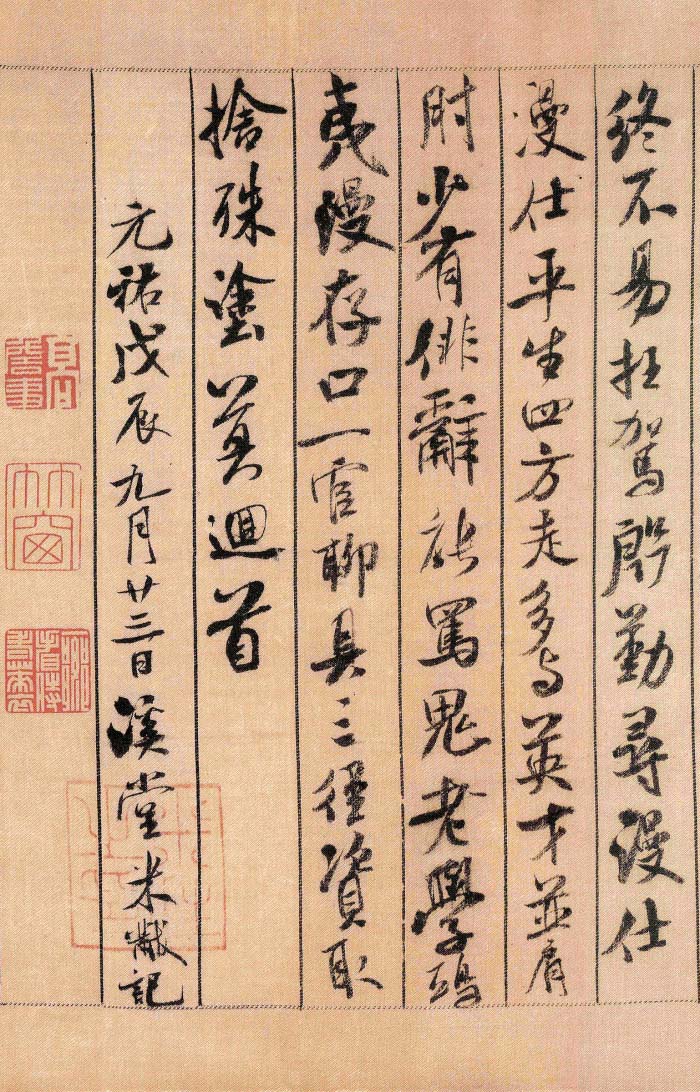 終不易枉駕殷勤尋漫仕
漫仕平生四方走多与英才並肩
肘少有俳辭能罵鬼老學鴟
夷漫存口一官聊具三徑資取
捨殊塗莫迴首
元祐戊辰九月廿三日溪堂米黻記
竹窗